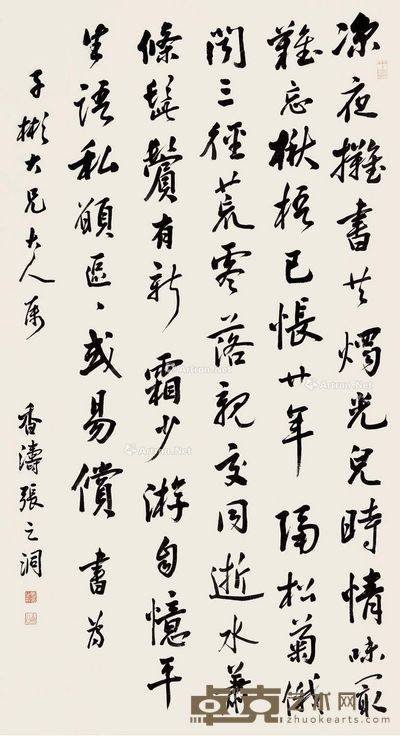 凉夜攤書共燭光兒時情味冣
難忘楸梧已悵廿年隔松菊俄
聞三徑荒零落親交同逝水蕭
條髭鬢有新霜少游自憶平
生語私願區、或易償 書為
子彬大兄大人属 香濤張之洞
Artron.Net
Artron.Net
Artron.Net
卓克艺术网
zhuokearts.com